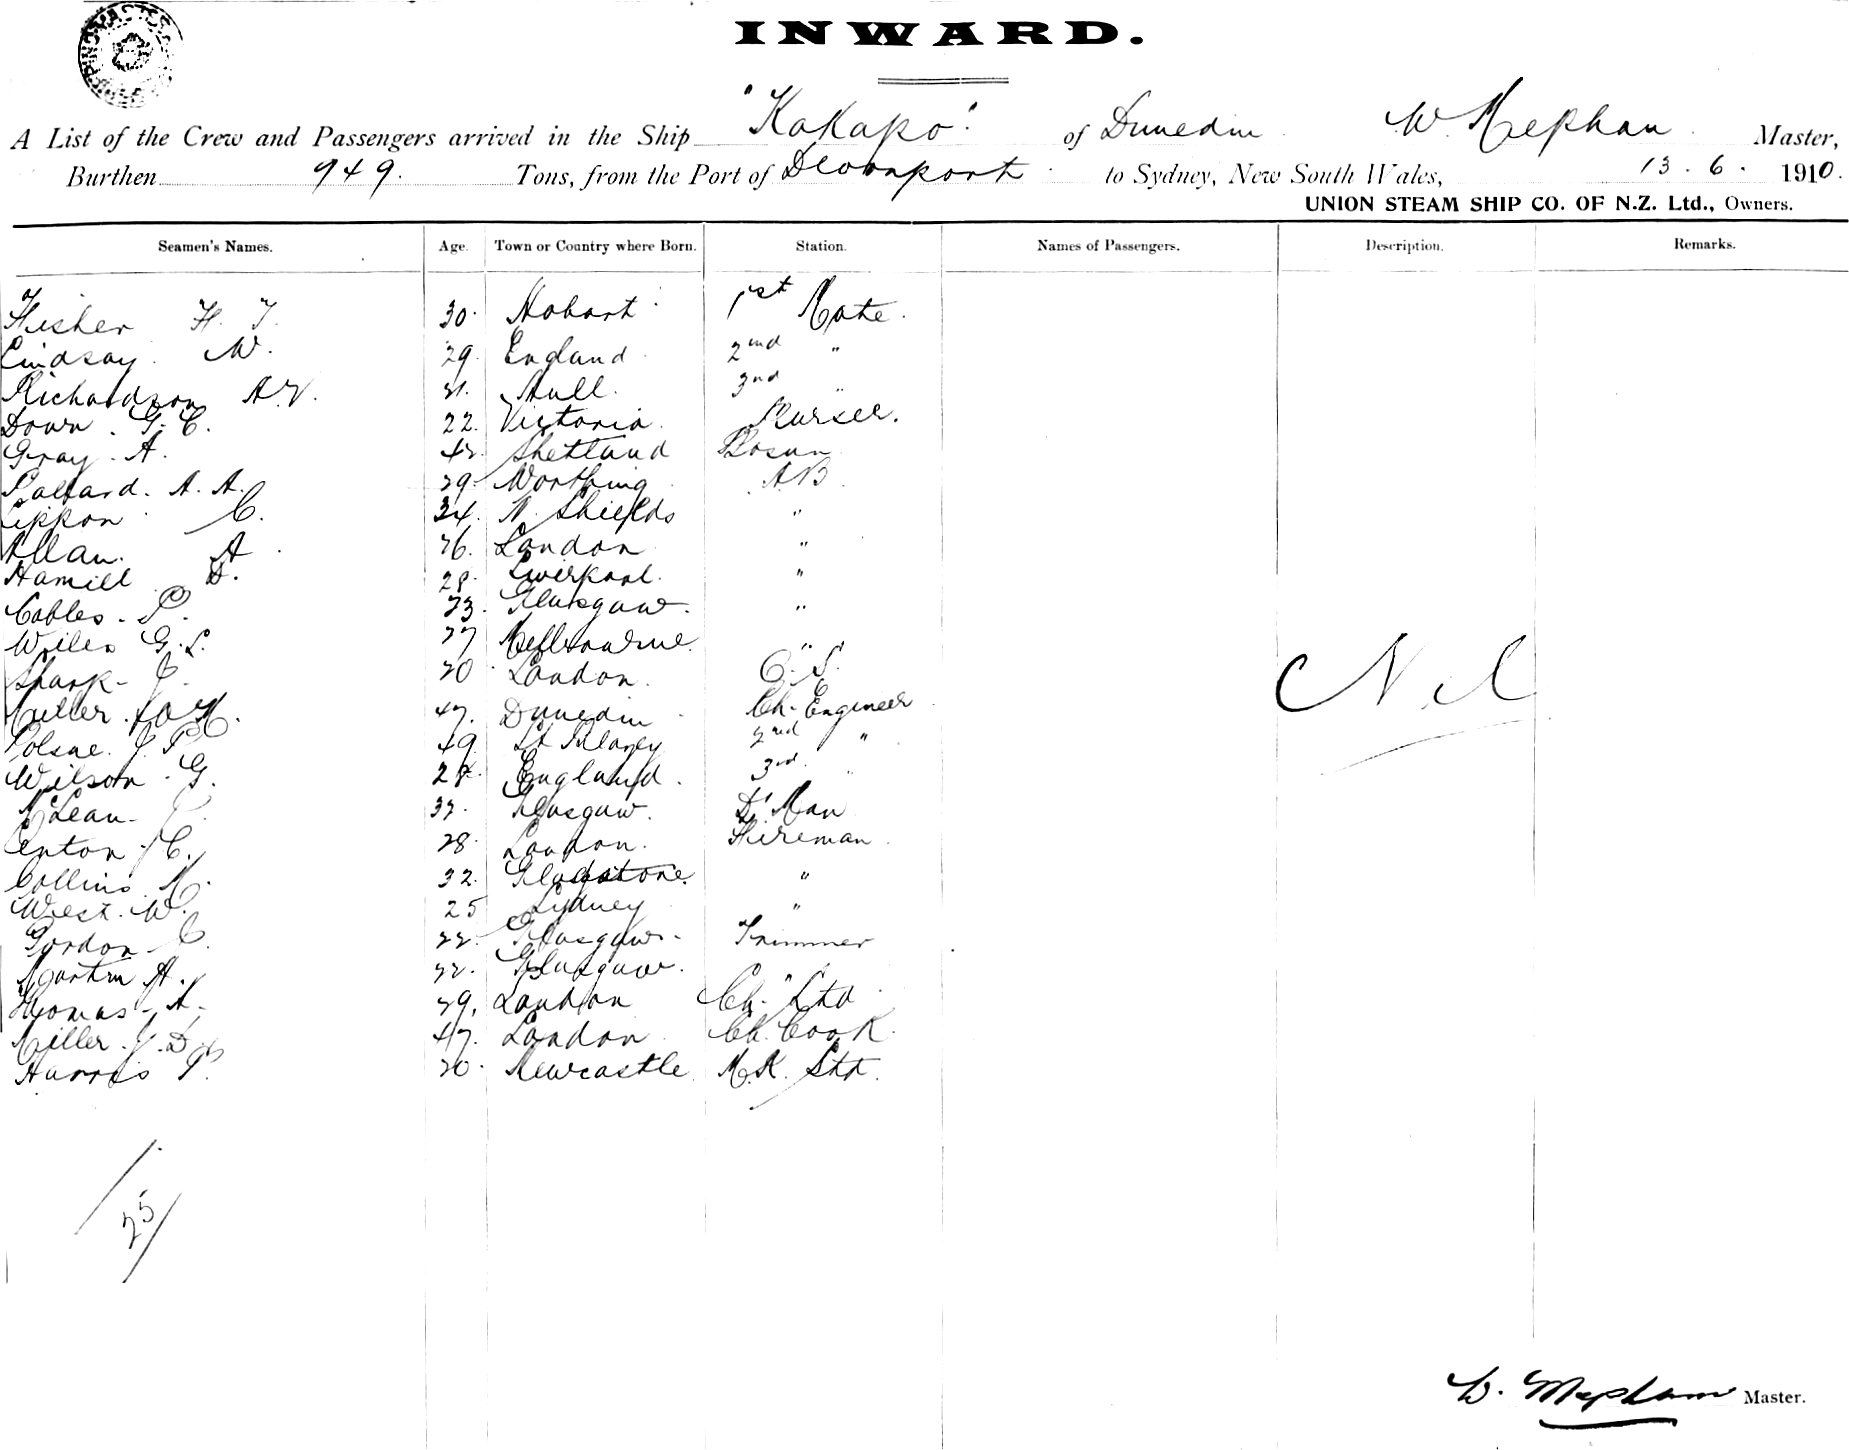 INWARD.
A List of the Crew and Passengers arrived in the Ship "Kakapo". of Dunedin W. Mephan Master,
Burthen 949. Tons, from the Port of Devonport to Sydney, New South Wales, 13. 6. 1910.
UNION STEAM SHIP CO. OF N.Z. Ltd., Owners.
Seamen's Names. Age. Town or Country where Born. Station. Names of Passengers. Description. Remarks.
Fisher H. J. 30. Hobart 1st Mate.
Lindsay. W. 29. England 2nd "
Richardson A.V. 21. Hull. 3rd "
Down. G. C. 22. Victoria. Purser.
Gray. A. 42. Shetland Bosun
Pollard. A. A. 29 Worthing AB
Lippon C. 34. N. Shields "
Allan. A 26. London "
Hamill D. 28. Liverpool. "
Cobles. P. 23. Glasgow. "
Wiles G. L. 27 Melbourne "
Shark. J. 20 London. O. S.
Miller. 47. Dunedin Ch. Engineer
J. P. 49. 2nd "
Wilson. G. 24. England. 3rd. "
McLean. 32. Glasgow. Dy Man
C. 28. London. Fireman
Collins M. 32. Gladstone. "
West. W. 25 Sydney "
Gordon C. 22. Glasgow. Trimmer
Martin A. 22. Glasgow. "
Thomas A. 29. London Ch. Std
Miller. J. D. 47. London Ch. Cook.
Harris P. 20. Newcastle M.R. Std.
Nil
25
W. Mepham Master.